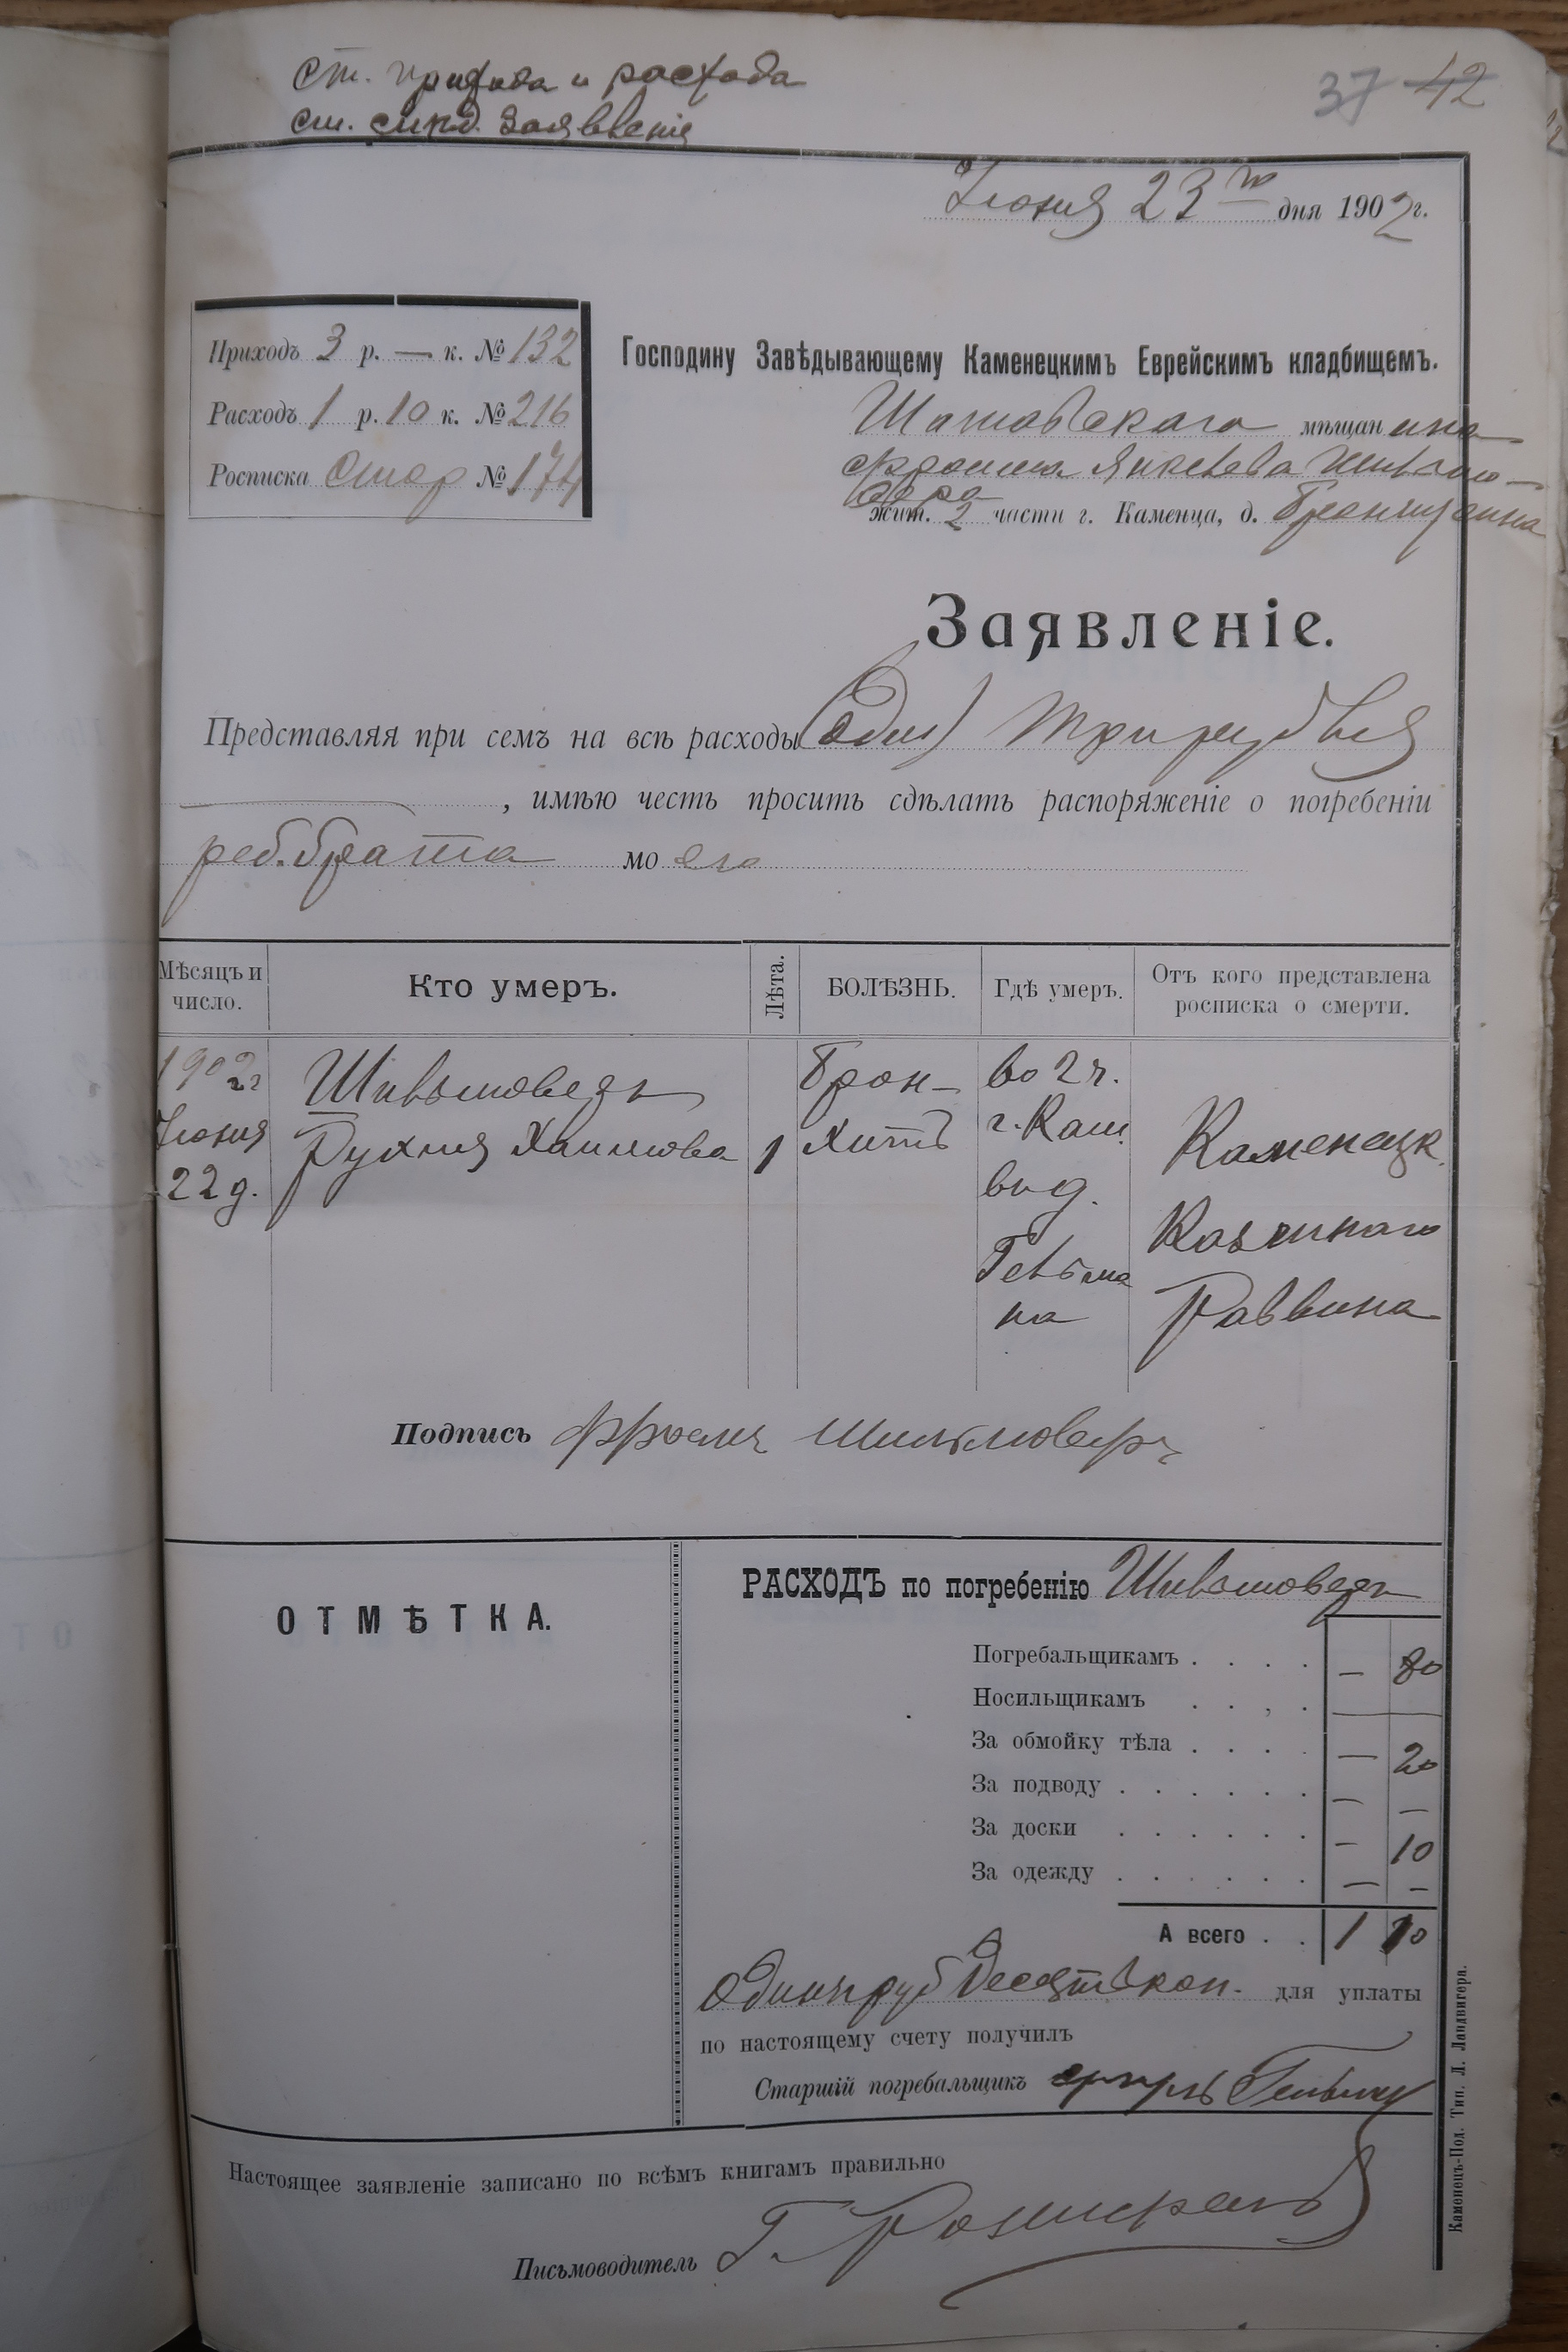 ст. прихода и расхода
см. слѣд. заявленія
37 42
Іюня 23го дня 1902 г.
Приходъ 3 р. — к. № 132
Расходъ 1 р. 10 к. № 216
Росписка № 174
Господину Завѣдывающему Каменецкимъ Еврейскимъ кладбищемъ.
Шатавскаго мѣщанина
Фроима
жит. 2 части г. Каменца, д.
Заявленіе.
Представляя при семъ на всѣ расходы три рубля
, имѣю честь просить сдѣлать распоряженіе о погребеніи
реб. брата моего
Мѣсяцъ и число.
Кто умеръ.
Лѣта.
БОЛѢЗНЬ.
Гдѣ умеръ.
Отъ кого представлена росписка о смерти.
1902 г
Іюня
22 д.
Рухля Хаимова
1
Брон-
хитъ
во 2 ч.
г. Кам.
въ д.
Гельма
на
Каменецк.
Казеннаго
Раввина
Подпись Фроимъ
ОТМѢТКА.
РАСХОДЪ по погребенію
Погребальщикамъ . . . . — 80
Носильщикамъ . . , .
За обмойку тѣла . . . . — 20
За подводу . . . . . . — —
За доски . . . . . . — 10
За одежду . . . . . . — —
А всего . . 1 10
Одинъ руб десять коп. для уплаты
по настоящему счету получилъ
Старшій погребальщикъ
Настоящее заявленіе записано по всѣмъ книгамъ правильно
Письмоводитель Г.
Каменецъ-Под. Тип. Л. Ландвигера.